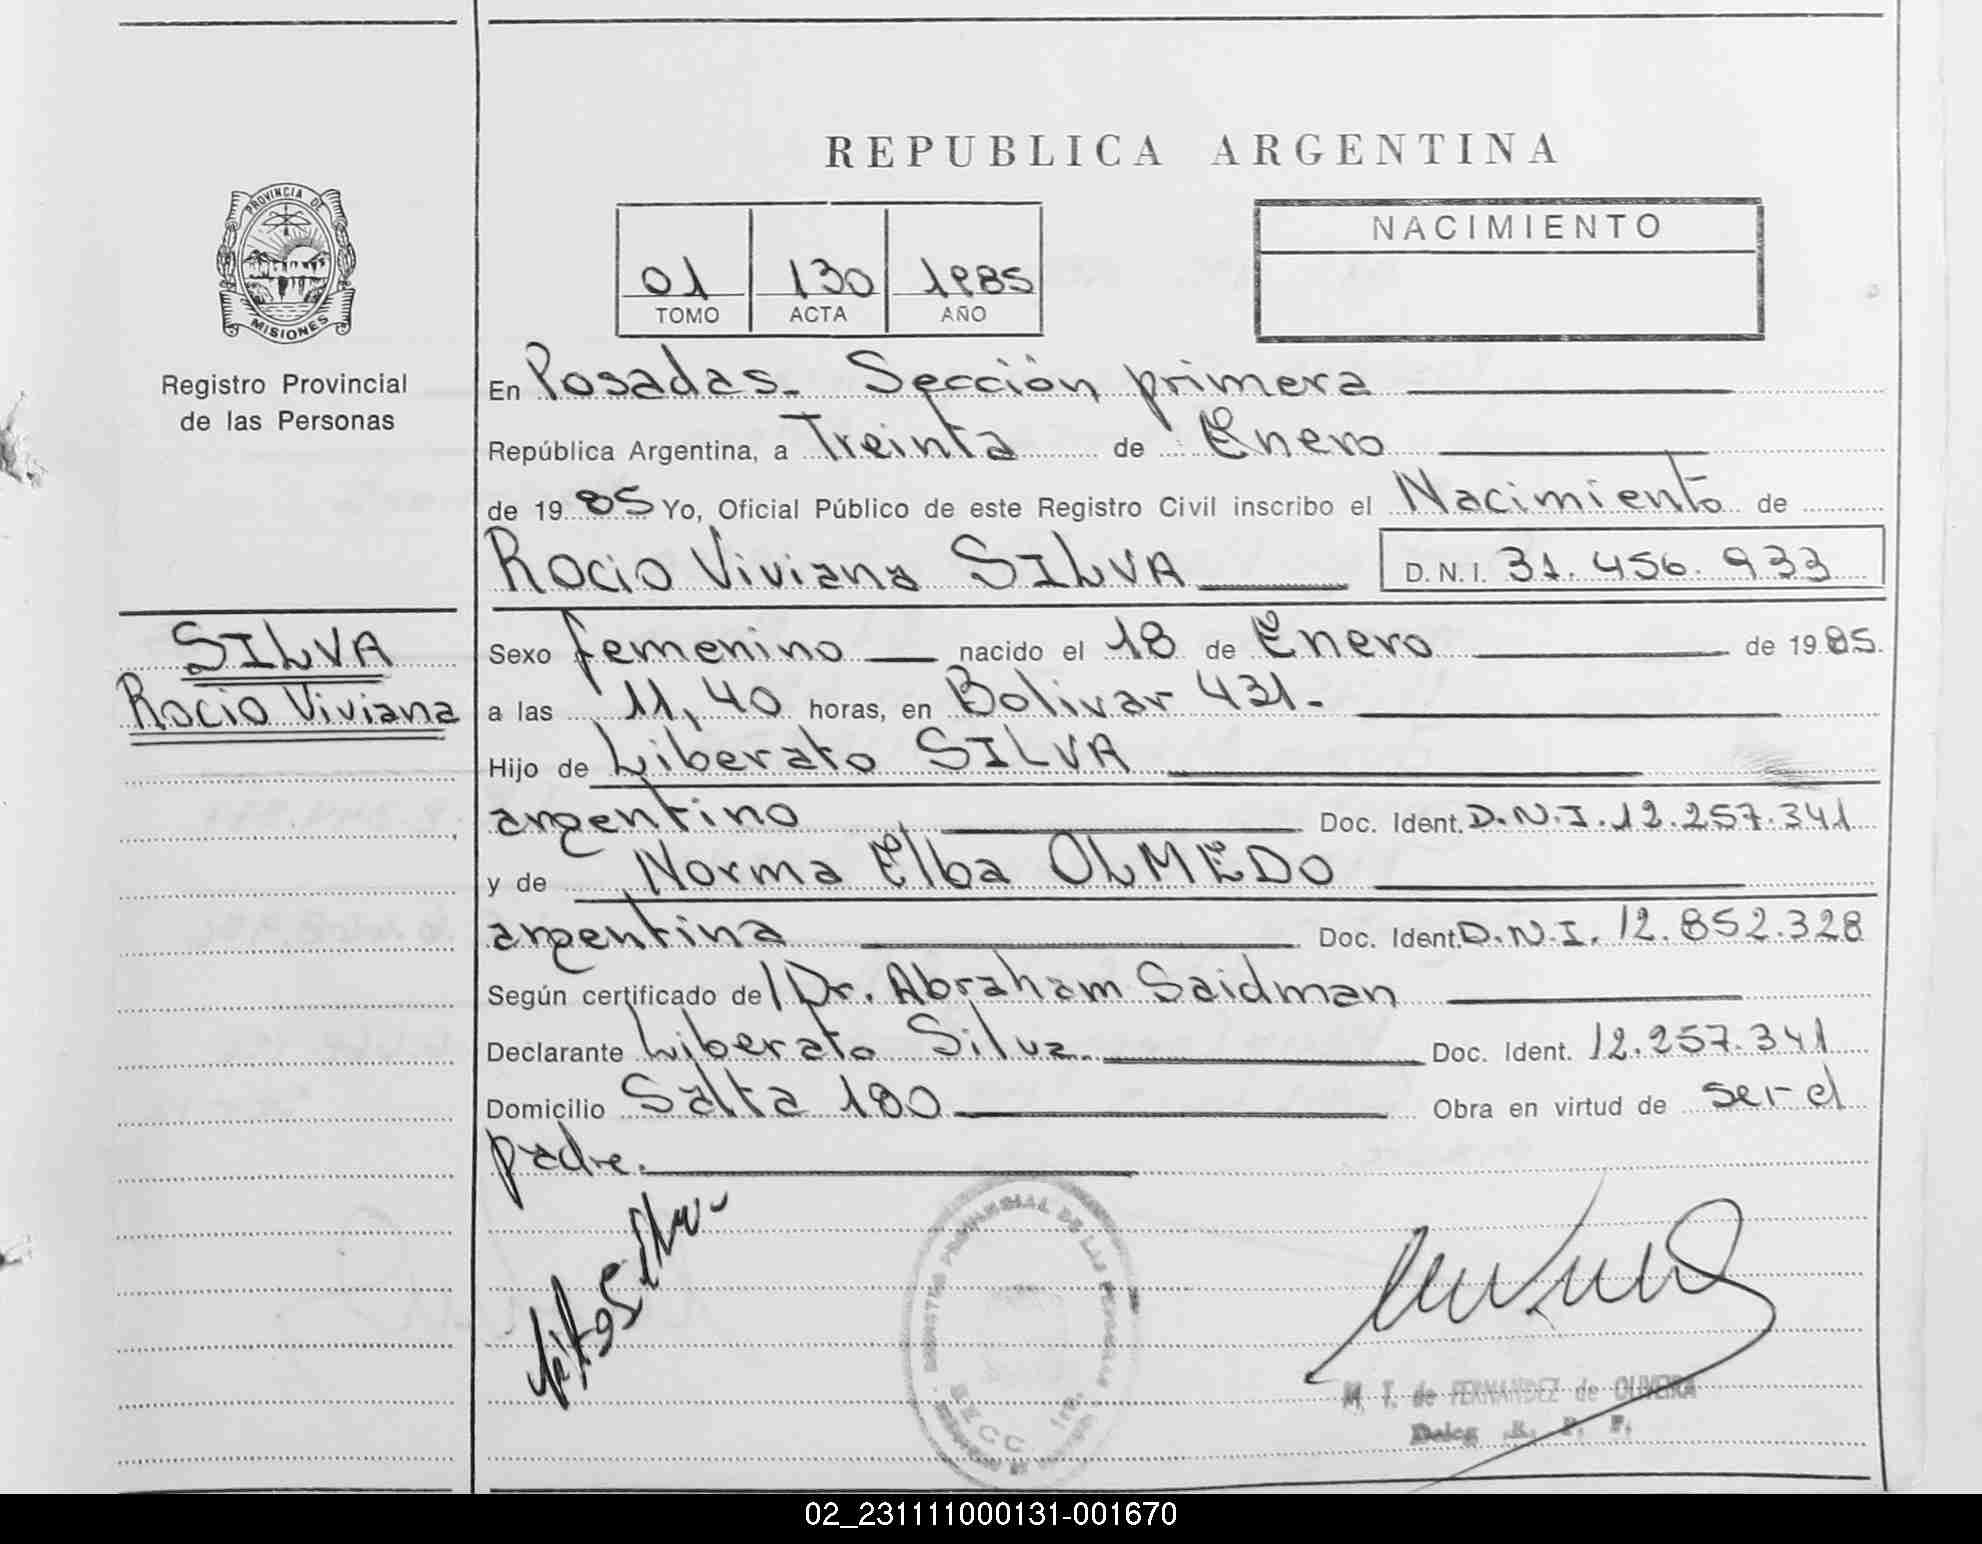 REPUBLICA ARGENTINA
PROVINCIA DE
MISIONES
Registro Provincial
de las Personas
01 130 1985
TOMO ACTA AÑO
NACIMIENTO
En Posadas. Sección primera
República Argentina, a Treinta de Enero
de 1985 Yo, Oficial Público de este Registro Civil inscribo el Nacimiento de
Rocio Viviana SILVA D.N.I. 31.456.933
SILVA
Rocio Viviana
Sexo femenino nacido el 18 de Enero de 1985.
a las 11,40 horas, en Bolivar 431.
Hijo de Liberato SILVA
argentino Doc. Ident. D.N.I. 12.257.341
y de Norma Elba OLMEDO
argentina Doc. Ident. D.N.I. 12.852.328
Según certificado de Dr. Abraham Saidman
Declarante Liberato Silva. Doc. Ident. 12.257.341
Domicilio Salta 180 Obra en virtud de ser el
padre.
PROVINCIAL DE LAS PERSONAS
SECC 1ra.
M. T. de FERNANDEZ de OLIVEIRA
Deleg. R. P. P.
02_231111000131-001670